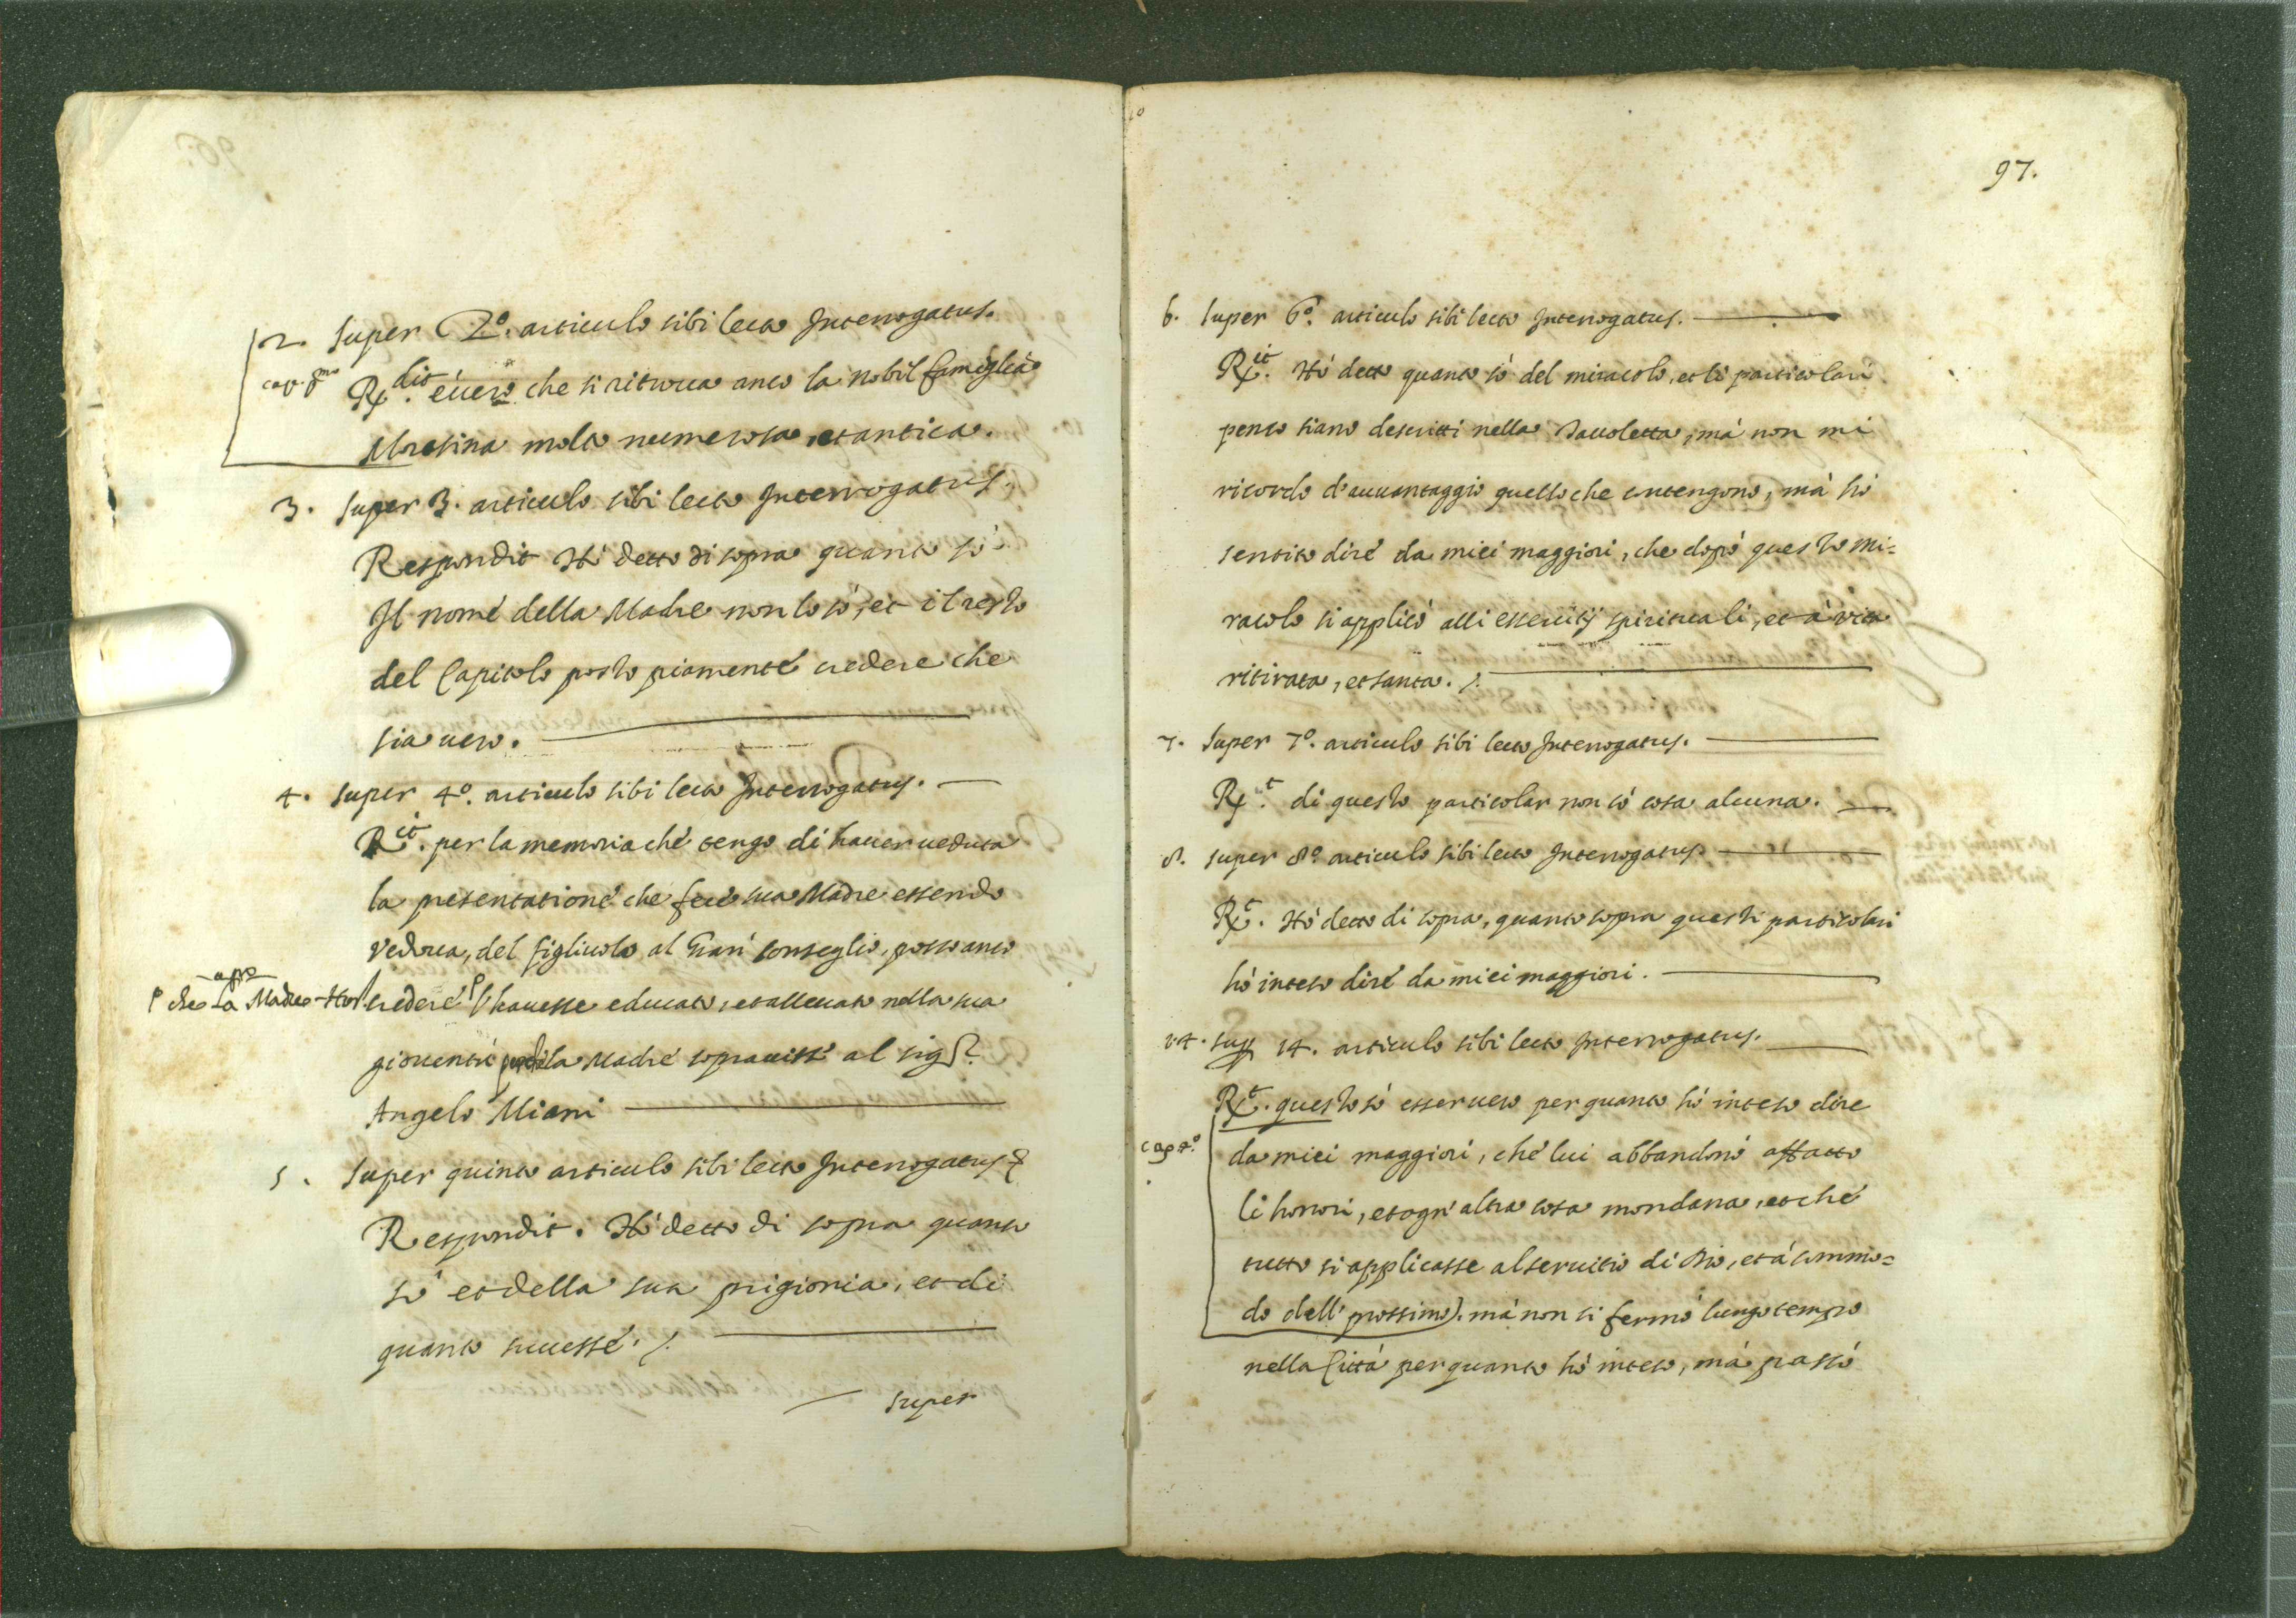 2. Super 2º. articulo sibi lecto Interrogatus.
cap. pmo
Rx dit. é uero che si ritroua anco la nobil famiglia
Moresina molto numerosa, et antica.
3. Super 3. articulo sibi lecto Interrogatus.
Respondit Hó detto di sopra quanto só
Il nome della Madre non lo só, et il resto
del Capitolo posso piamente credere che
sia uero.
4. Super 4º. articulo sibi lecto Interrogatus.
Rx it. per la memoria che tengo di hauer ueduta
la presentatione che fece sua Madre essendo
Vedoua, del figliuolo al Gran Conseglio, posso anco
che La Madre
credere l'hauesse educato, et alleuato nella sua
giouentú la Madre soprauisse al sigr.
Angelo Miani
5. Super quinto articulo sibi lecto Interrogatus
Respondit. Hó detto di sopra quanto
só et della sua prigionia, et di
quanto successe.
Super
97.
6. Super 6º. articulo sibi lecto Interrogatus.
Rx it. Hó detto quanto só del miracolo, et li particolari
penso siano descritti nella Tauoletta, má non mi
ricordo d'auuantaggio quello che contengono, má hó
sentito dire da miei maggiori, che dopó questo mi=
racolo si applicó alli essercitij spirituali, et á vita
ritirata, et santa.
7. Super 7º. articulo sibi lecto Interrogatus.
Rx t. di questo particolar non só cosa alcuna.
8. Super 8º articulo sibi lecto Interrogatus.
Rx t. Hó detto di sopra, quanto sopra questi particolari
hó inteso dire da miei maggiori.
14. Sup 14. articulo sibi lecto Interrogatus.
Rx t. questo só esser uero per quanto hó inteso dire
cap 4º.
da miei maggiori, che lui abbandonó affatto
li honori, et ogn' altra cosa mondana, et che
tutto si applicasse al seruitio di Dio, et á commo=
do dell' prossimo). má non si fermó lungo tempo
nella Cittá per quanto hó inteso, má passó